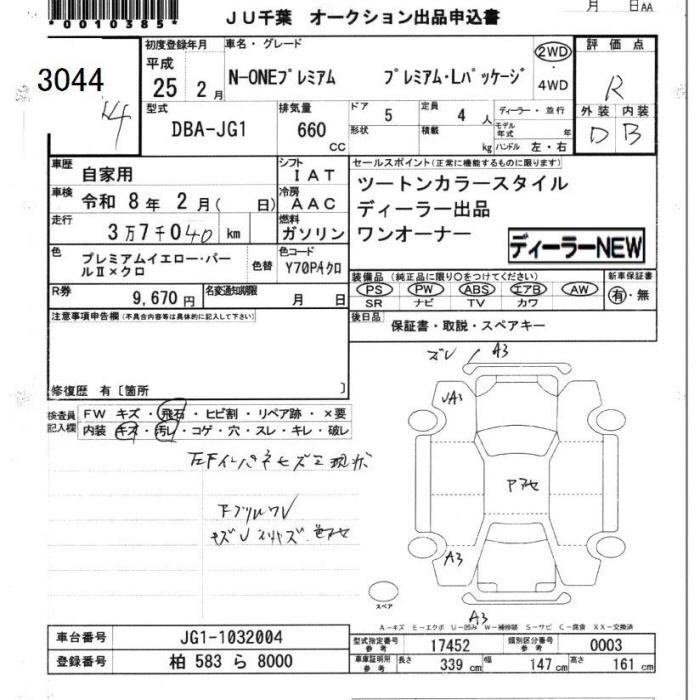 *0010385*
JU千葉 オークション出品申込書
月 日AA
3044
初度登録年月
平成
25 2 月
車名・グレード
N-ONEプレミアム プレミアム・Lパッケージ
2WD
・
4WD
評価点
R
外装 内装
D B
型式
DBA-JG1
排気量
660
CC
ドア
5
形状
定員
4 人
積載
kg
ディーラー・並行
モデル年式 年
ハンドル 左・右
車歴
自家用
シフト
IAT
車検
令和 8 年 2 月( 日)
冷房
AAC
走行
3万7千040 km
燃料
ガソリン
セールスポイント(正常に機能するものに限ります)
ツートンカラースタイル
ディーラー出品
ワンオーナー
ディーラーNEW
色
プレミアムイエロー・パー
ルⅡ×クロ
色替
色コード
Y70P4クロ
装備品 (純正品に限り○をつけてください)
PS PW ABS エアB AW
SR ナビ TV カワ
新車保証書
有・無
R券
9,670 円
名変通知期限
月 日
後日品
保証書・取説・スペアキー
注意事項申告欄(不具合内容等は具体的に記入して下さい)
修復歴 有〔箇所 〕
検査員
記入欄
FW キズ・飛石・ヒビ割・リペア跡・×要
内装 キズ・汚レ・コゲ・穴・スレ・キレ・破レ
ズレ
A3
A3
A3
A3
スペア
A-キズ E-エクボ U-凹み W-補修跡 S-サビ C-腐食 XX-交換済
車台番号
JG1-1032004
登録番号
柏 583 ら 8000
型式指定番号
参考
17452
類別区分番号
参考
0003
車庫証明用
参考
長さ 339 cm
幅 147 cm
高さ 161 cm